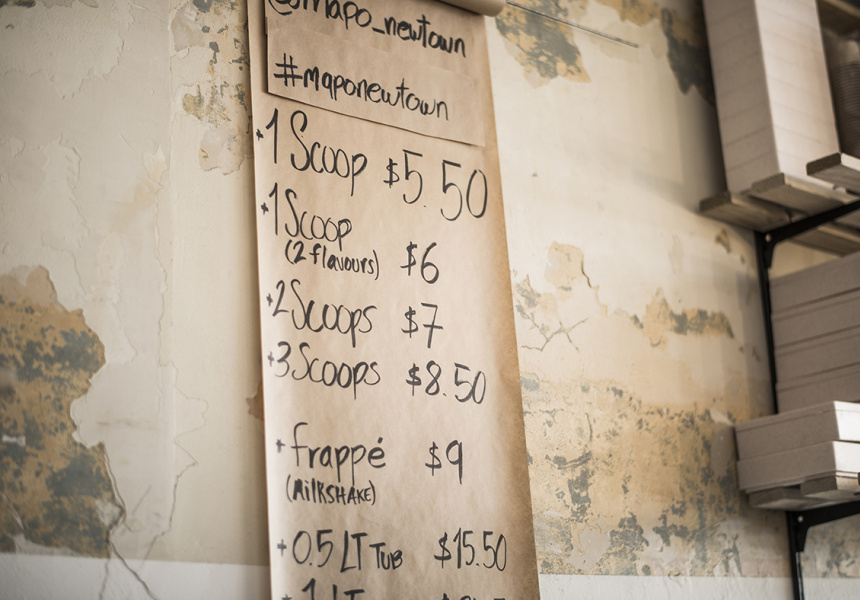 @mapo_newtown
#maponewtown
+1 Scoop $5.50
+1 Scoop
(2 flavours) $6
+2 Scoops $7
+3 Scoops $8.50
+frappé $9
(MilKSHAKE)
+0.5 LT TUB $15.50
+1 LT